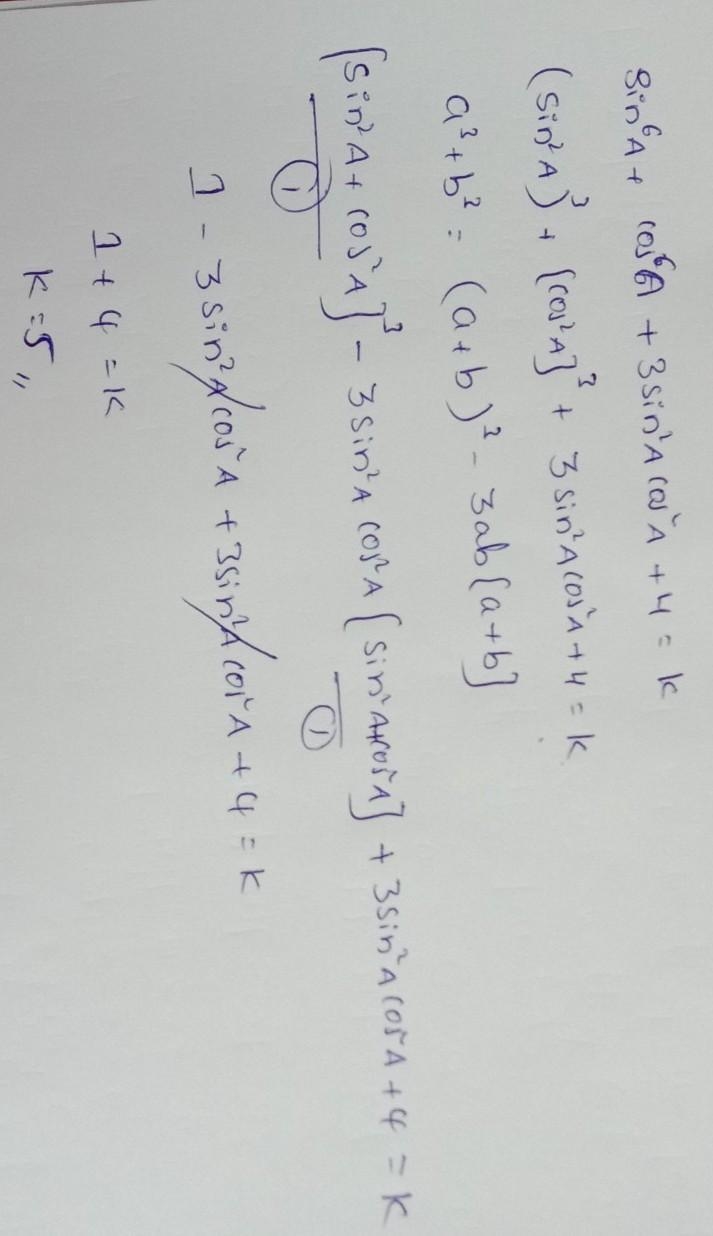 sin⁶A + cos⁶A + 3sin²A cos²A + 4 = K
(sin²A)³ + [cos²A]³ + 3 sin²A cos²A + 4 = K
a³ + b³ = (a + b)³ - 3ab[a + b]
[sin²A + cos²A]³ - 3 sin²A cos²A [sin²A + cos²A] + 3 sin²A cos²A + 4 = K
① ①
1 - 3 sin²A cos²A + 3 sin²A cos²A + 4 = K
1 + 4 = K
K = 5 〃